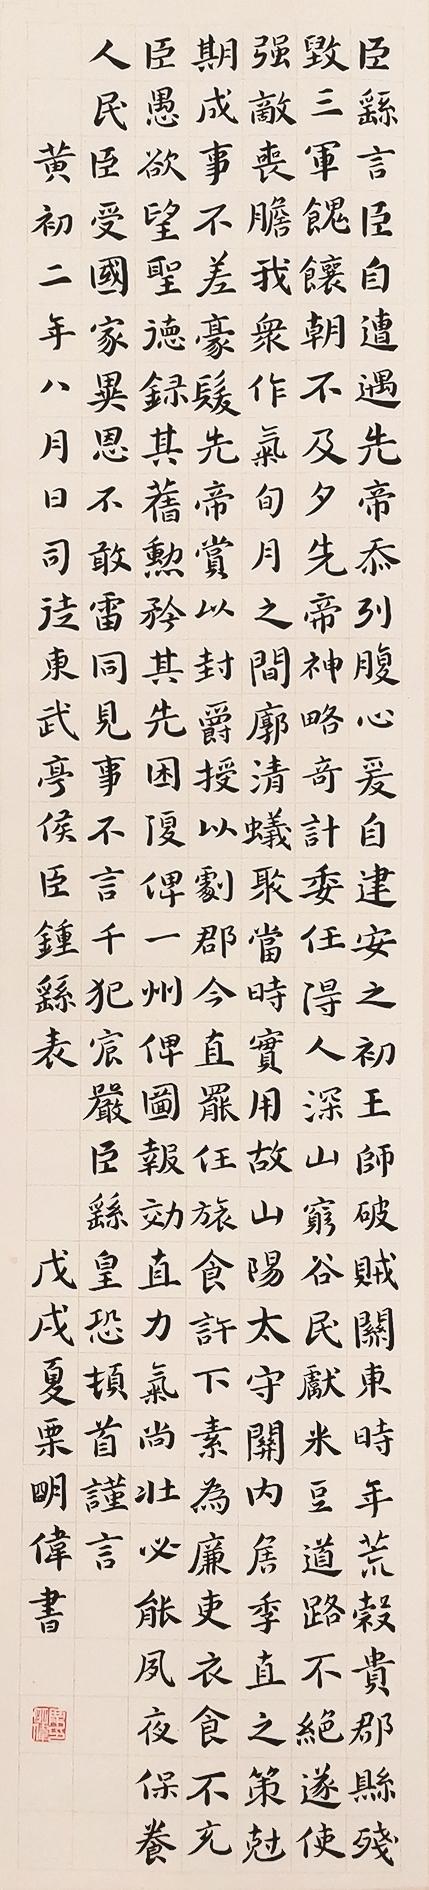 臣繇言臣自遭遇先帝忝列腹心爰自建安之初王師破賊關東時年荒穀貴郡縣殘
毀三軍餽饟朝不及夕先帝神略奇計委任得人深山窮谷民獻米豆道路不絕遂使
强敵喪膽我衆作氣旬月之間廓清蟻聚當時實用故山陽太守關内侯季直之策尅
期成事不差豪髮先帝賞以封爵授以劇郡今直罷任旅食許下素為廉吏衣食不充
臣愚欲望聖德録其舊勲矜其先困復俾一州俾圖報効直力氣尚壯必能夙夜保養
人民臣受國家異恩不敢雷同見事不言千犯宸嚴臣繇皇恐頓首謹言
黃初二年八月日司徒東武亭侯臣鍾繇表 戊戌夏栗明偉書